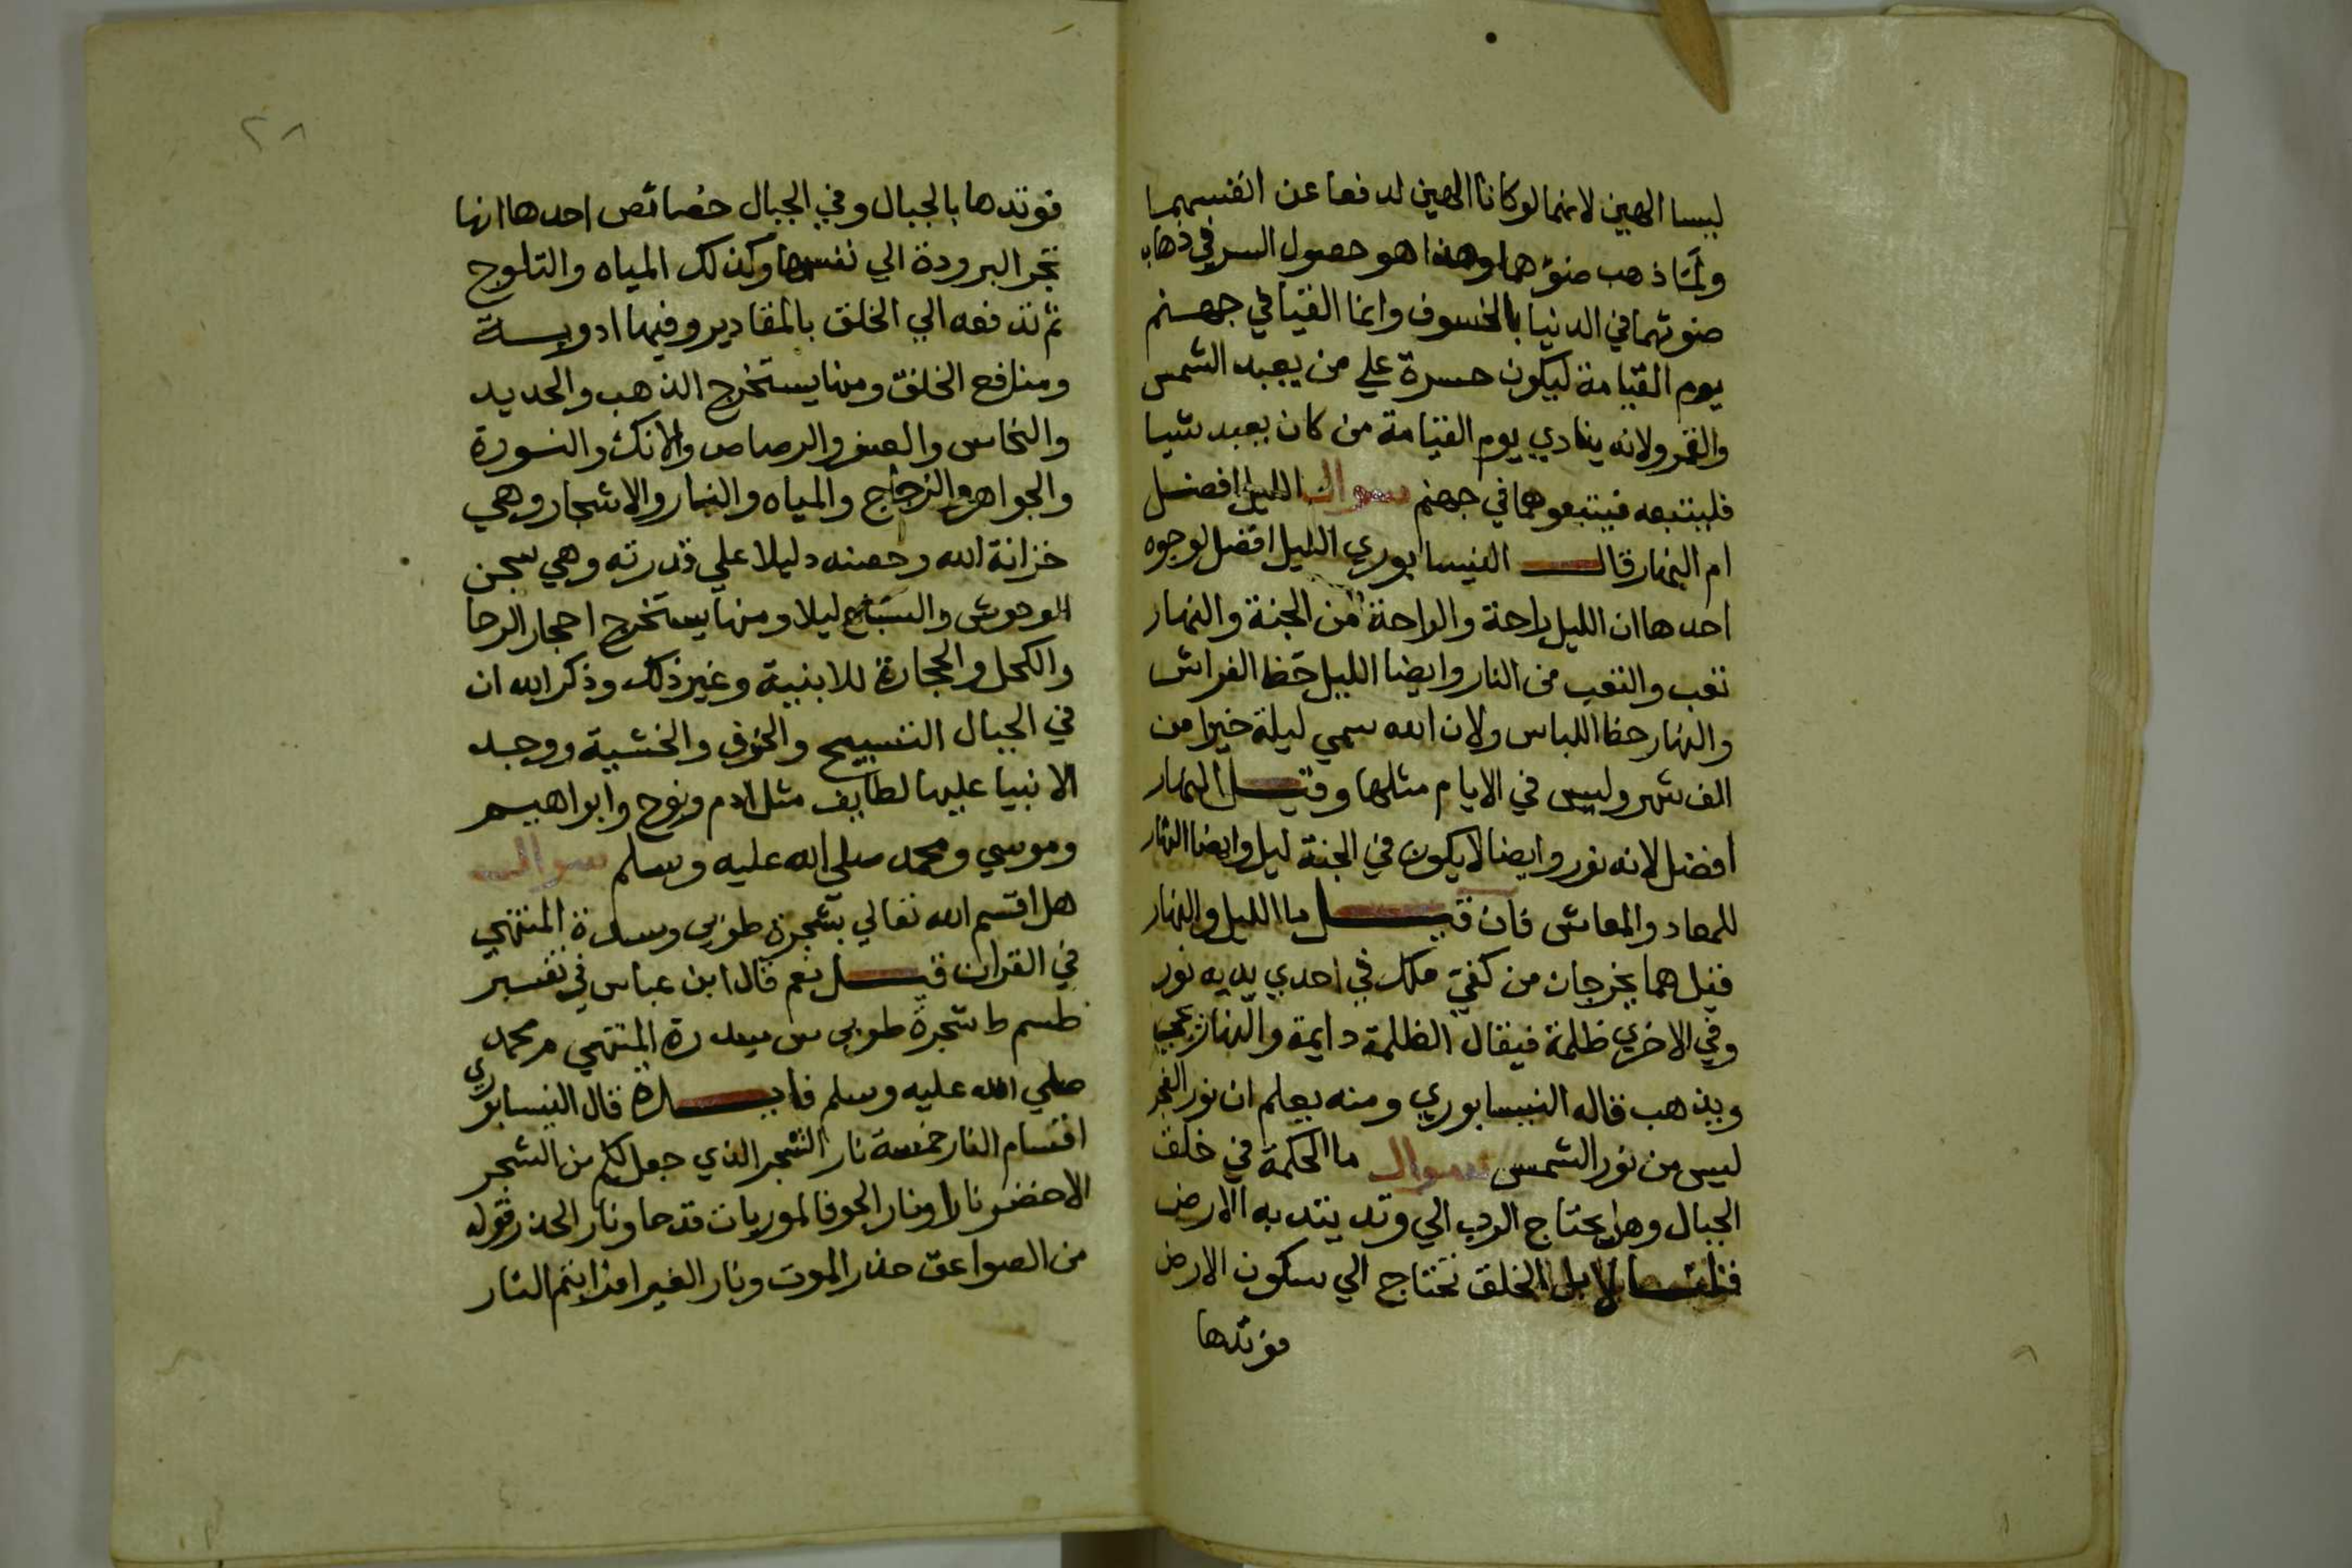 ليسا الهين لانهما لو كانا الهين لدفعا عن انفسهما
ولمّا ذهب ضؤهما وهذا هو حصول السر في ذهاب
ضوئهما في الدنيا بالخسوف وانما القيا في جهنم
يوم القيامة ليكون حسرة علي من يعبد الشمس
والقمر ولانه ينادي يوم القيامة من كان يعبد شيا
فليتبعه فيتبعوهما في جهنم سوال الليل افضل
ام النهار قال النيسابوري الليل افضل لوجوه
احدها ان الليل راحة والراحة من الجنة والنهار
تعب والتعب من النار وايضا الليل حظ الفراش
والنهار حظ اللباس ولان الله سمي ليلة خيرا من
الف شهر وليس في الايام مثلها وقيل النهار
افضل لانه نور وايضا لا يكون في الجنة ليل وايضا النهار
للمعاد والمعاش فان قيل ما الليل والنهار
فقيل هما يخرجان من كفي ملك في احدي يديه نور
وفي الاخري ظلمة فيقال الظلمة دايمة والنهار يجي
ويذهب قاله النيسابوري ومنه يعلم ان نور الفجر
ليس من نور الشمس سوال ما الحكمة في خلق
الجبال وهل يحتاج الرب الي وتد يتد به الارض
الخلق تحتاج الي سكون الارض
فوتدها
٢٨
فوتدها بالجبال وفي الجبال خصائص احدها انها
تجر البرودة الي نفسها وكذلك المياه والثلوج
ثم تدفعه الي الخلق بالمقادير وفيها ادوية
ومنافع الخلق ومنها يستخرج الذهب والحديد
والنحاس والصفر والرصاص والانك والنورة
والجواهر والزجاج والمياه والثمار والاشجار وهي
خزانة الله وحصنه دليلا علي قدرته وهي سجن
الوحوش والسباع ليلا ومنها يستخرج احجار الرحا
والكحل والحجارة للابنية وغير ذلك وذكر الله ان
في الجبال التسبيح والخوف والخشية ووجد
الانبيا عليها لطايف مثل ادم ونوح وابراهيم
وموسي ومحمد صلي الله عليه وسلم سوال
هل اقسم الله تعالي بشجرة طوبي وسدرة المنتهي
في القران قيل نعم قال ابن عباس في تفسير
طسم ط شجرة طوبي س سدرة المنتهي م محمد
صلي الله عليه وسلم فايدة قال النيسابوري
اقسام النار خمسة نار الشجر الذي جعل لكم من الشجر
الاخضر نارا ونار الجو فالموريات قدحا ونار الحذر قوله
من الصواعق حذر الموت ونار الغير افرايتم النار